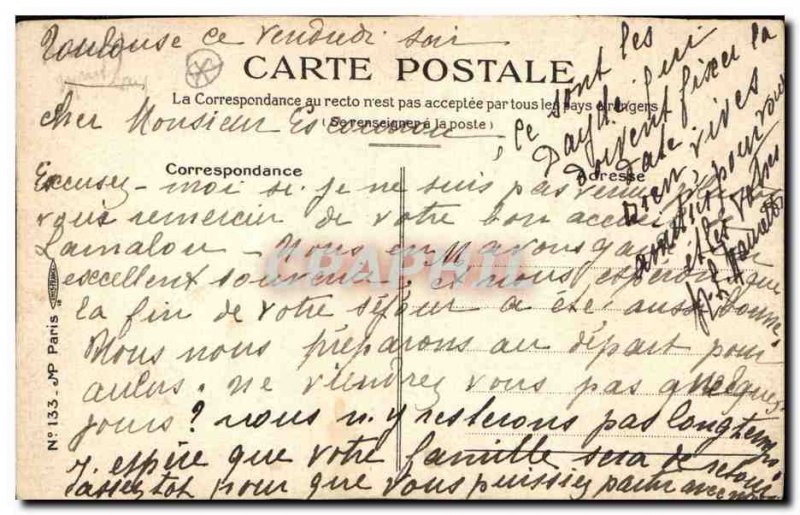 Toulouse ce vendredi soir
CARTE POSTALE
La Correspondance au recto n'est pas acceptée par tous les pays étrangers
(Se renseigner à la poste)
Cher Monsieur
Correspondance
Adresse
Excusez-moi si je ne suis pas venu
vous remercier de votre bon accueil
Lamalou - Nous en avons gardé un
excellent souvenir, et nous espérons que
la fin de votre séjour a été aussi bonne.
Nous nous préparons au départ pour
aulus. Ne viendrez vous pas quelques
jours ? nous n'y resterons pas longtemps
J'espère que votre famille sera de retour
assez tôt pour que vous puissiez partir avec nous
Ce sont les
qui
doivent fixer la
date
Bien vives
amitiés pour vous
et les vôtres
CPAPHIL
N° 133. JP Paris